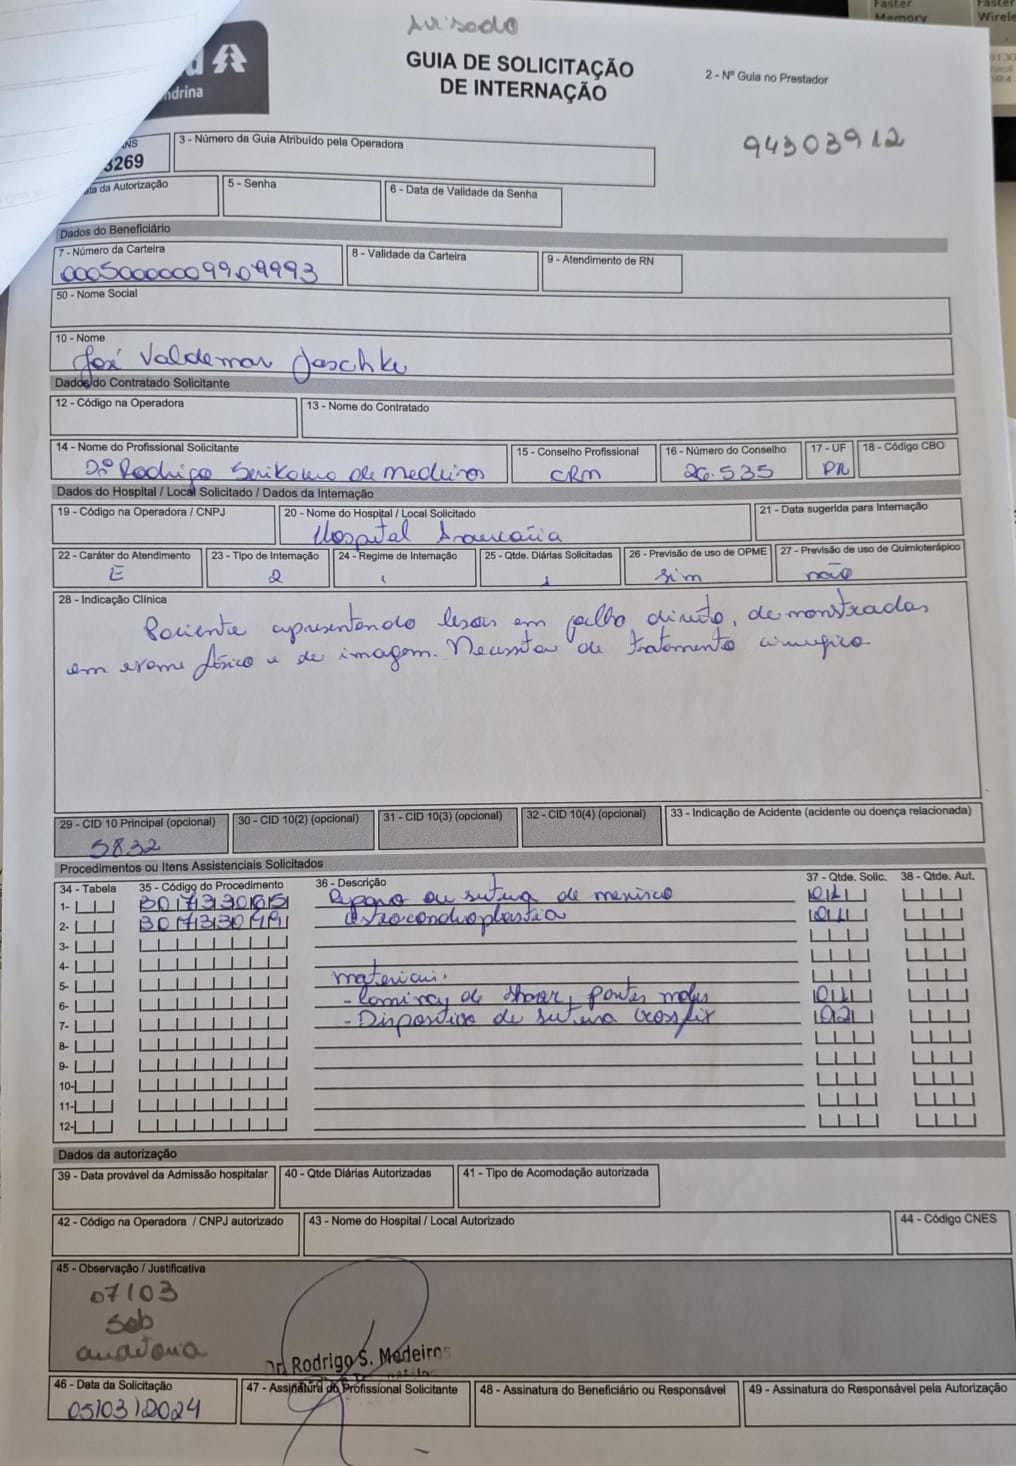 Faster
Memory
Faster
Wirele
Avisado
GUIA DE SOLICITAÇÃO
DE INTERNAÇÃO
2 - Nº Guia no Prestador
94303912
d
ndrina
ANS
3269
3 - Número da Guia Atribuído pela Operadora
ata da Autorização
5 - Senha
6 - Data de Validade da Senha
Dados do Beneficiário
7 - Número da Carteira
8 - Validade da Carteira
9 - Atendimento de RN
50 - Nome Social
10 - Nome
José Valdemar Jaschke
Dados do Contratado Solicitante
12 - Código na Operadora
13 - Nome do Contratado
14 - Nome do Profissional Solicitante
15 - Conselho Profissional
16 - Número do Conselho
17 - UF
18 - Código CBO
Drº Rodrigo Serikawa de Medeiros
CRM
26.535
PR
Dados do Hospital / Local Solicitado / Dados da Internação
19 - Código na Operadora / CNPJ
20 - Nome do Hospital / Local Solicitado
21 - Data sugerida para Internação
Hospital Araucária
22 - Caráter do Atendimento
23 - Tipo de Internação
24 - Regime de Internação
25 - Qtde. Diárias Solicitadas
26 - Previsão de uso de OPME
27 - Previsão de uso de Quimioterápico
E
2
1
1
sim
não
28 - Indicação Clínica
Paciente apresentando lesões em joelho direito, demonstradas
em exame físico e de imagem. Necessita de tratamento cirurgico.
29 - CID 10 Principal (opcional)
30 - CID 10(2) (opcional)
31 - CID 10(3) (opcional)
32 - CID 10(4) (opcional)
33 - Indicação de Acidente (acidente ou doença relacionada)
S832
Procedimentos ou Itens Assistenciais Solicitados
34 - Tabela
35 - Código do Procedimento
36 - Descrição
37 - Qtde. Solic.
38 - Qtde. Aut.
1- Reparo ou sutura de menisco 01
2- Osteocondroplastia 01
3-
4-
5- materiais.
6- - Lamina de shaver, partes moles 01
7- - Dispositivo de sutura crossfix 02
8-
9-
10-
11-
12-
Dados da autorização
39 - Data provável da Admissão hospitalar
40 - Qtde Diárias Autorizadas
41 - Tipo de Acomodação autorizada
42 - Código na Operadora / CNPJ autorizado
43 - Nome do Hospital / Local Autorizado
44 - Código CNES
45 - Observação / Justificativa
07/03
Sob
auditoria
Dr. Rodrigo S. Medeiros
46 - Data da Solicitação
47 - Assinatura do Profissional Solicitante
48 - Assinatura do Beneficiário ou Responsável
49 - Assinatura do Responsável pela Autorização
05/03/2024